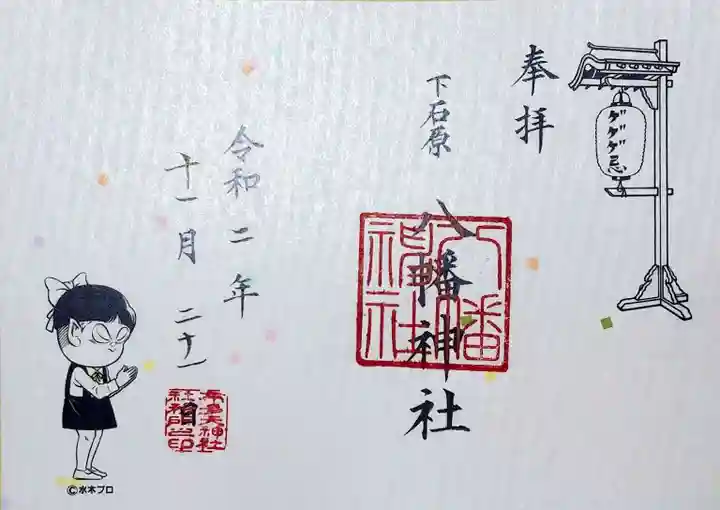 ゲゲゲ忌
奉拝
下石原
八幡神社
八幡神社
令和二年
十一月二十一日
©水木プロ